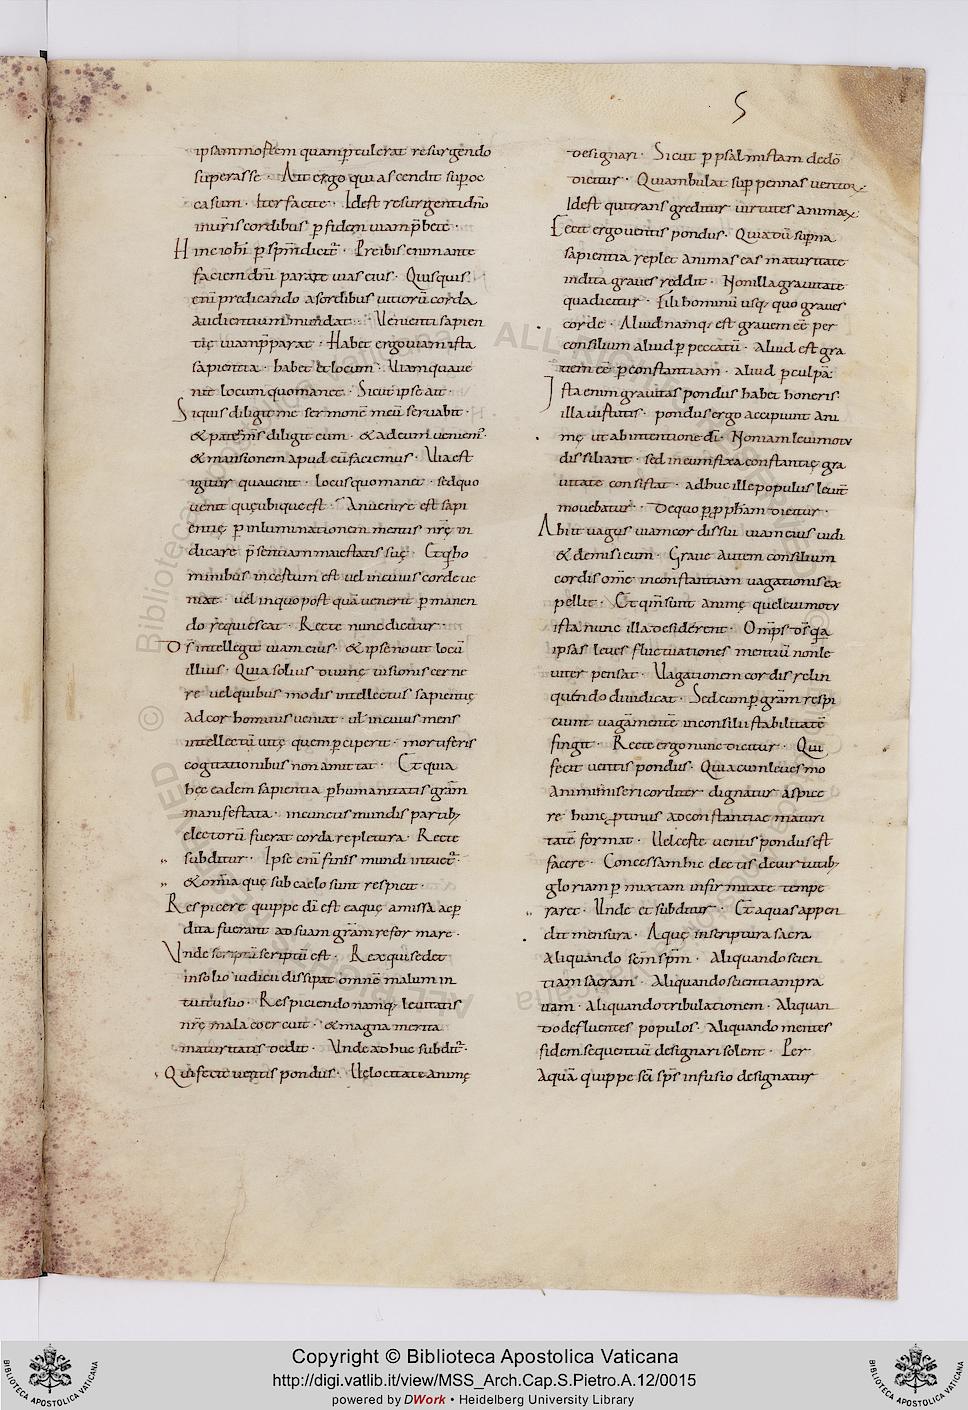 5
ipsam mortem quam ptulerat resurgendo
superasse · Ait ergo qui ascendit sup oc
casum · Iter facite · Idest resurgenti dno
in uris cordibus p fidem uiam pbete ·
Hinc iohi p spm dicit · Preibis enim ante
faciem dni parare uias eius · Quisquis
eni predicando a sordibus uitioru corda
audientium mundat · Uenienti sapien
tie uiam pparat · Habet ergo uiam ista
sapientia · habet et locum · Uiam qua ue
nit locum quo manet · Sicut ipse ait ·
Siquis diligit me sermone meu seruabit ·
& pater ms diligit eum · & ad eum ueniem ·
& mansionem apud eu faciemus · Uia est
igitur qua uenit · locus quo manet · sed quo
uenit que ubique est · An uenire est sapi
entie p inluminationem mentis nre in
dicare psentiam maiestatis sue · Et q ho
minibus incertum est uel in cuius corde ue
niat · uel in quo post qua uenerit p manen
do requiescat · Recte nunc dicitur ·
Ds intellegit uiam eius · & ipse nouit locu
illius · Quia solius diuine uisionis cerne
re uel quibus modis intellectus sapientie
ad cor hominis ueniat · ul in cuius mens
intellectu uite quem pceperit · mortiferis
cogitationibus non amittat · Et quia
hec eadem sapientia p humanitatis gram
manifestata · in cunctis mundi partib;
electoru fuerat corda repletura · Recte
subditur · Ipse eni fines mundi intuet ·
& omia que sub caelo sunt respicit ·
Respicere quippe di est eaque amissa ac p
dita fuerant ad suam gram reformare ·
Unde scriptu scriptu est · Rex qui sedet
in solio iudicii dissipat omne malum in
tuitu suo · Respiciendo namq; leuitatis
nre mala coercuit · & magna merita
maturitatis dedit · Unde adhuc subdit ·
Qui fecit uentis pondus · Uelocitate anime
designari · Sicut p psalmistam de do
dicitur · Qui ambulat sup pennas uentor ·
Idest qui transgreditur uirtutes animar ·
Fecit ergo uentis pondus · Quia du supna
sapientia replet animas eas maturitate
indita graues reddit · Non illa grauitate
qua dicitur · Filii hominu usq; quo graues
corde · Aliud namq; est grauem ee per
consilium aliud p peccatu · Aliud est gra
uem ee p constantiam · aliud p culpa ·
Ista enim grauitas pondus habet honeris
illa uirtutis · pondus ergo accipiunt ani
me ut ab intentione di · Non iam leui motu
dissiliant · sed in eum fixa constantie gra
uitate consistat · adhuc ille populus leuit
mouebatur · De quo p ppham dicitur ·
Abiit uagus uiam cordis sui uiam eius uidi
& demisi eum · Graue autem consilium
cordis ome inconstantiam uagationis ex
pellit · Et qm sunt anime que leui motu
ista nunc illa desiderent · Omps ds qa
ipsas leues fluctuationes mentiu non le
uiter pensat · Uagationem cordis relin
quendo diiudicat · Sed cum p gram respi
ciunt uagamente in consilii stabilitate
fingit · Recte ergo nunc dicitur · Qui
fecit uentis pondus · Quia cum leues mo
animi misericorditer dignatur aspice
re hunc ptinus ad constantiae maturi
tate format · Uelcerte uentis pondus est
facere · Concessam hic electis de uirtutib;
gloriam p mixtam infirmitate tempe
raret · Unde et subditur · Et aquas appen
dit mensura · Aque in scriptura sacra
aliquando scm spm · Aliquando scien
tiam sacram · Aliquando scientiam pra
uam · aliquando tribulationem · Aliquan
do defluentes populos · aliquando mentes
fidem sequentiu designari solent · Per
aqua quippe sci sps infusio designatur
Copyright © Biblioteca Apostolica Vaticana
http://digi.vatlib.it/view/MSS_Arch.Cap.S.Pietro.A.12/0015
powered by DWork • Heidelberg University Library